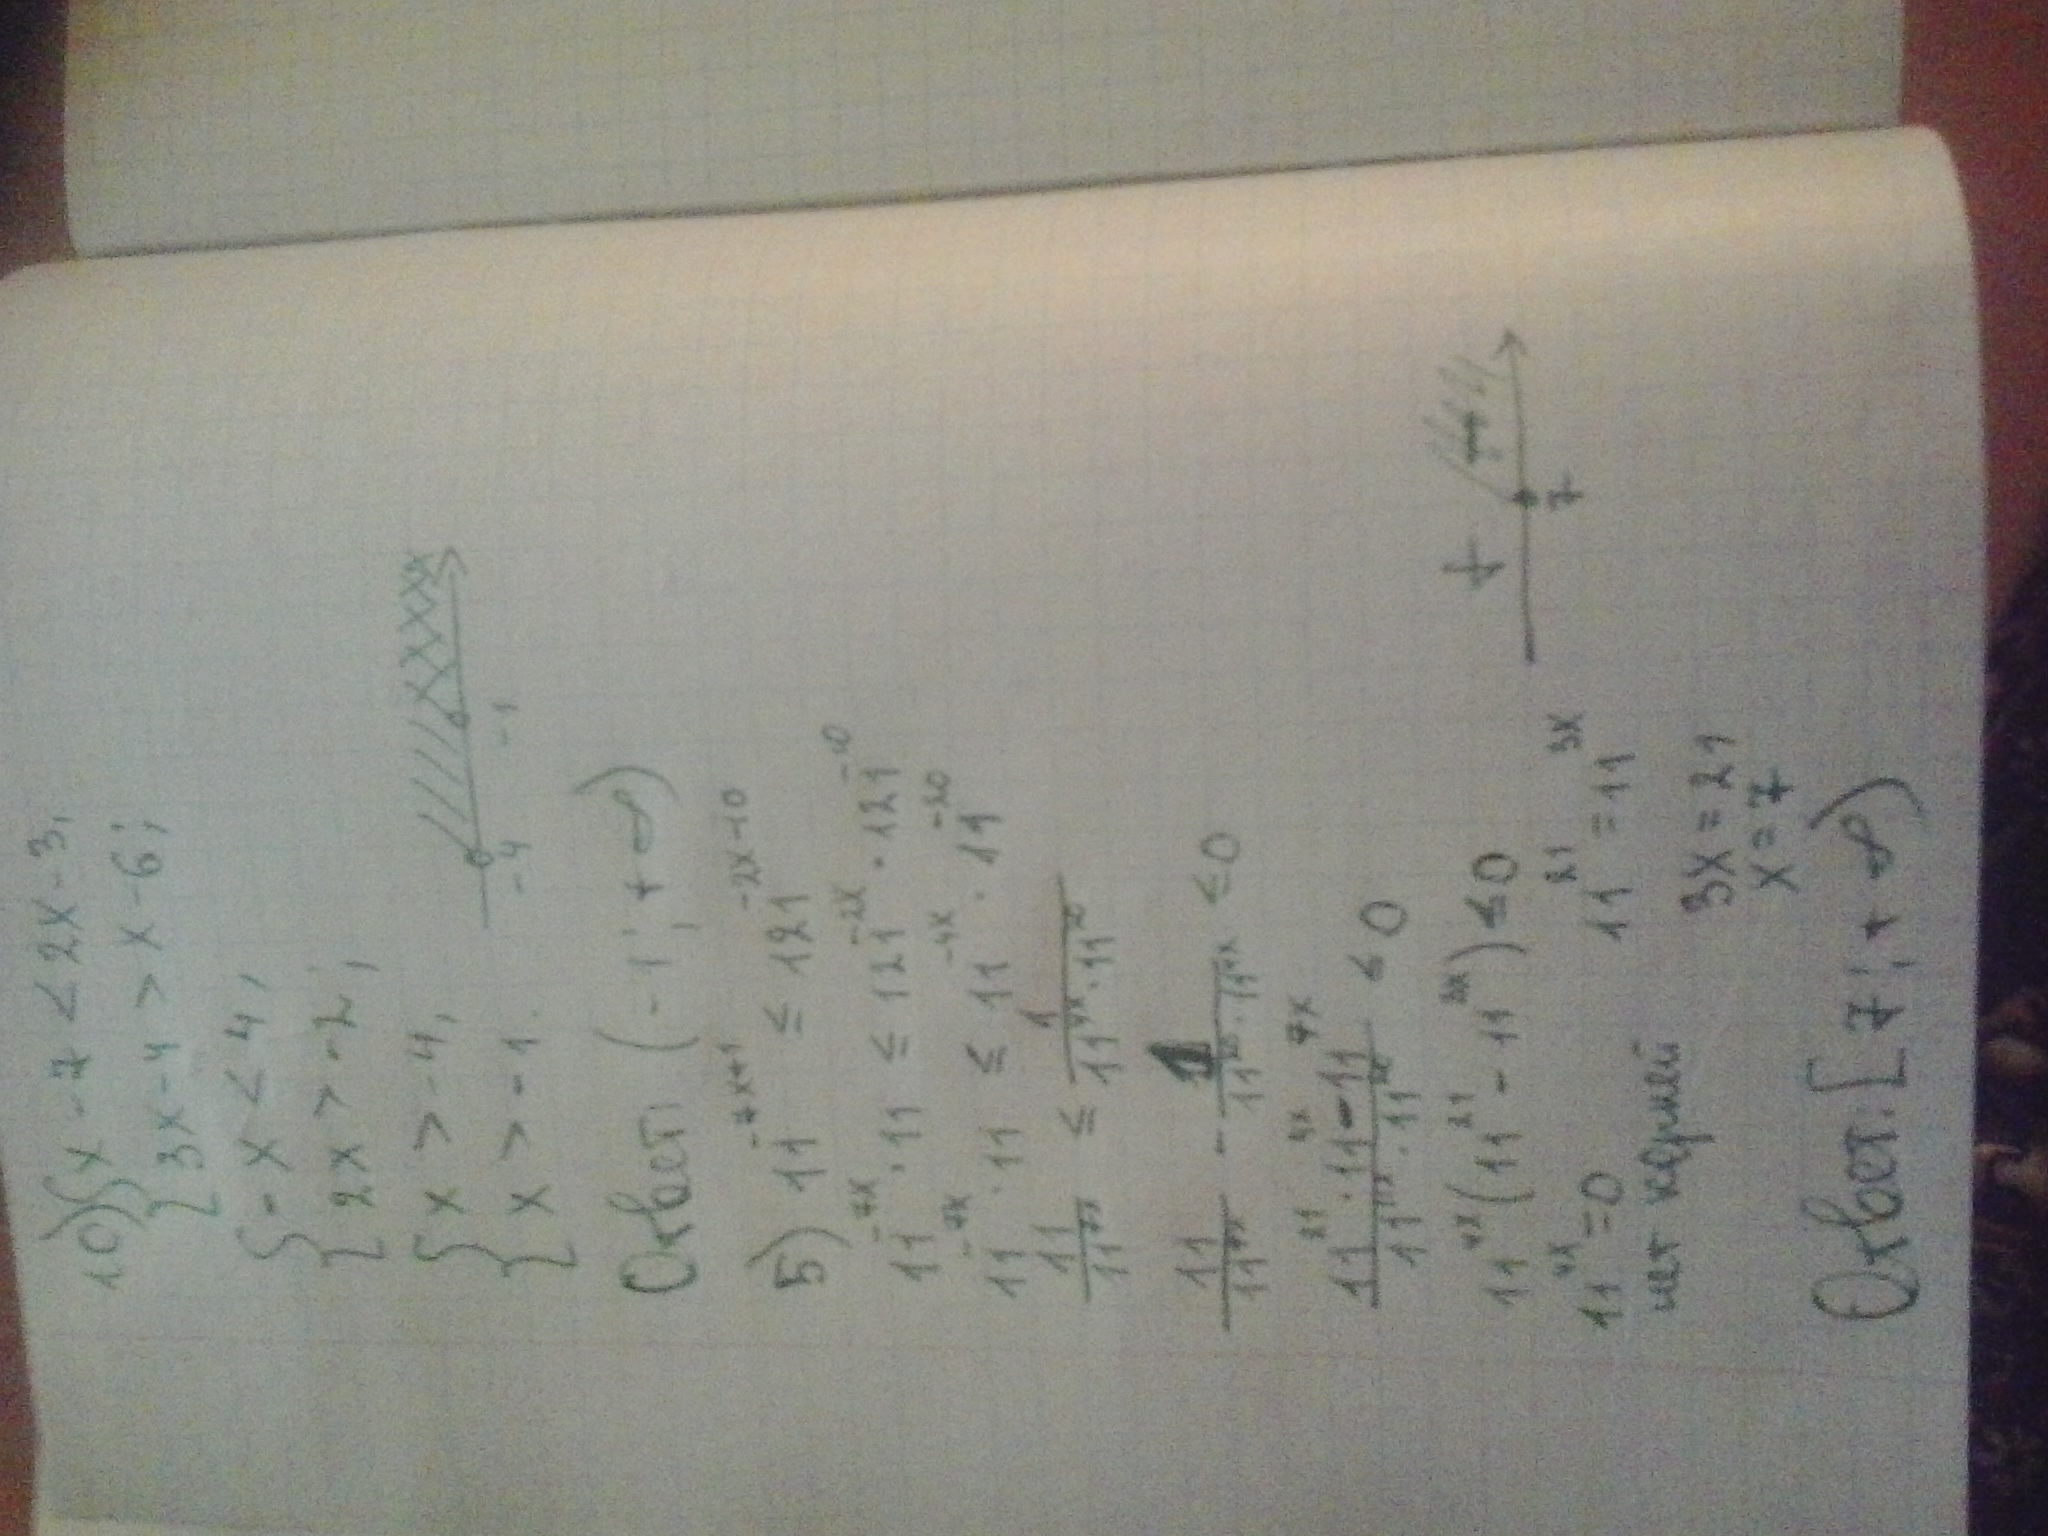 10) { x - 7 < 2x - 3,
{ 3x - 4 > x - 6;
{ -x < 4,
{ 2x > -2;
{ x > -4,
{ x > -1.
-4 -1
Ответ: (-1; +∞)
5) 11^(-7x+1) ≤ 121^(-2x-10)
11^(-7x) · 11 ≤ 121^(-2x) · 121^(-10)
11^(-7x) · 11 ≤ 11^(-4x) · 11^(-20)
11/11^(7x) ≤ 1/(11^(4x) · 11^(20))
11/11^(7x) - 1/(11^(20) · 11^(4x)) ≤ 0
(11^(21) · 11^(4x) - 11^(7x))/(11^(7x) · 11^(20)) ≤ 0
11^(4x) (11^(21) - 11^(3x)) ≤ 0
+ 7
11^(4x) = 0 11^(21) = 11^(3x)
нет корней 3x = 21
x = 7
Ответ: [7; +∞)